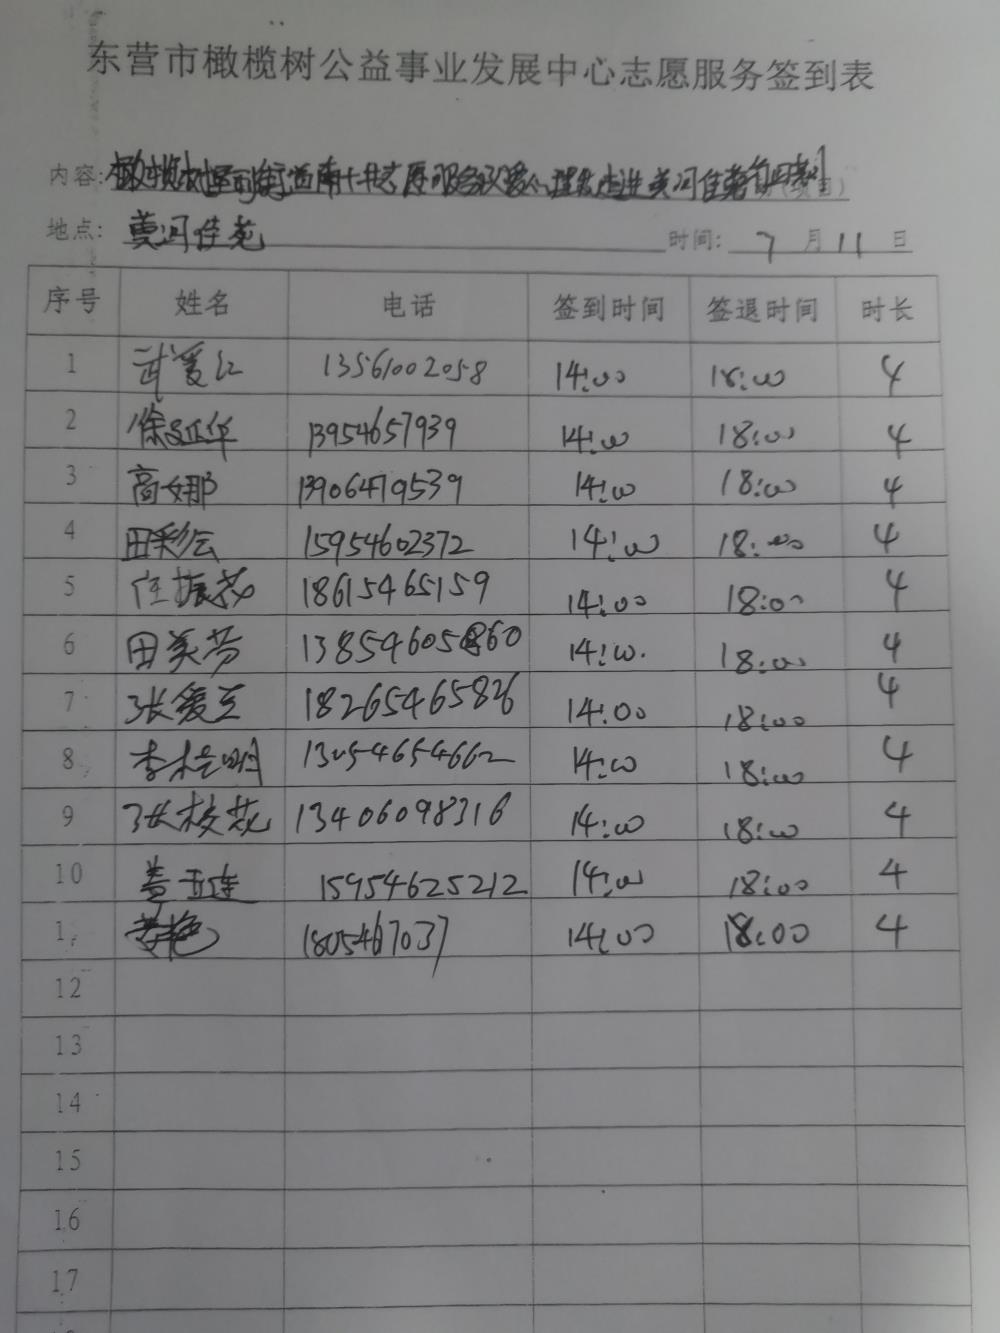 东营市橄榄树公益事业发展中心志愿服务签到表
内容: 橄榄树 志愿服务 爱心理发走进黄河佳苑
地点: 黄河佳苑 时间: 7 月 11 日
序号 姓名 电话 签到时间 签退时间 时长
1 武爱红 13561002058 14:00 18:00 4
2 徐延华 13954657939 14:00 18:00 4
3 高娜 13906479539 14:00 18:00 4
4 田彩云 15954602372 14:00 18:00 4
5 任振芬 18615465159 14:00 18:00 4
6 田美芳 13854605860 14:00 18:00 4
7 张爱芝 18265465826 14:00 18:00 4
8 李桂明 13054654662 14:00 18:00 4
9 张校花 13406098316 14:00 18:00 4
10 盖玉连 15954625212 14:00 18:00 4
1 1805467037 14:00 18:00 4
12
13
14
15
16
17